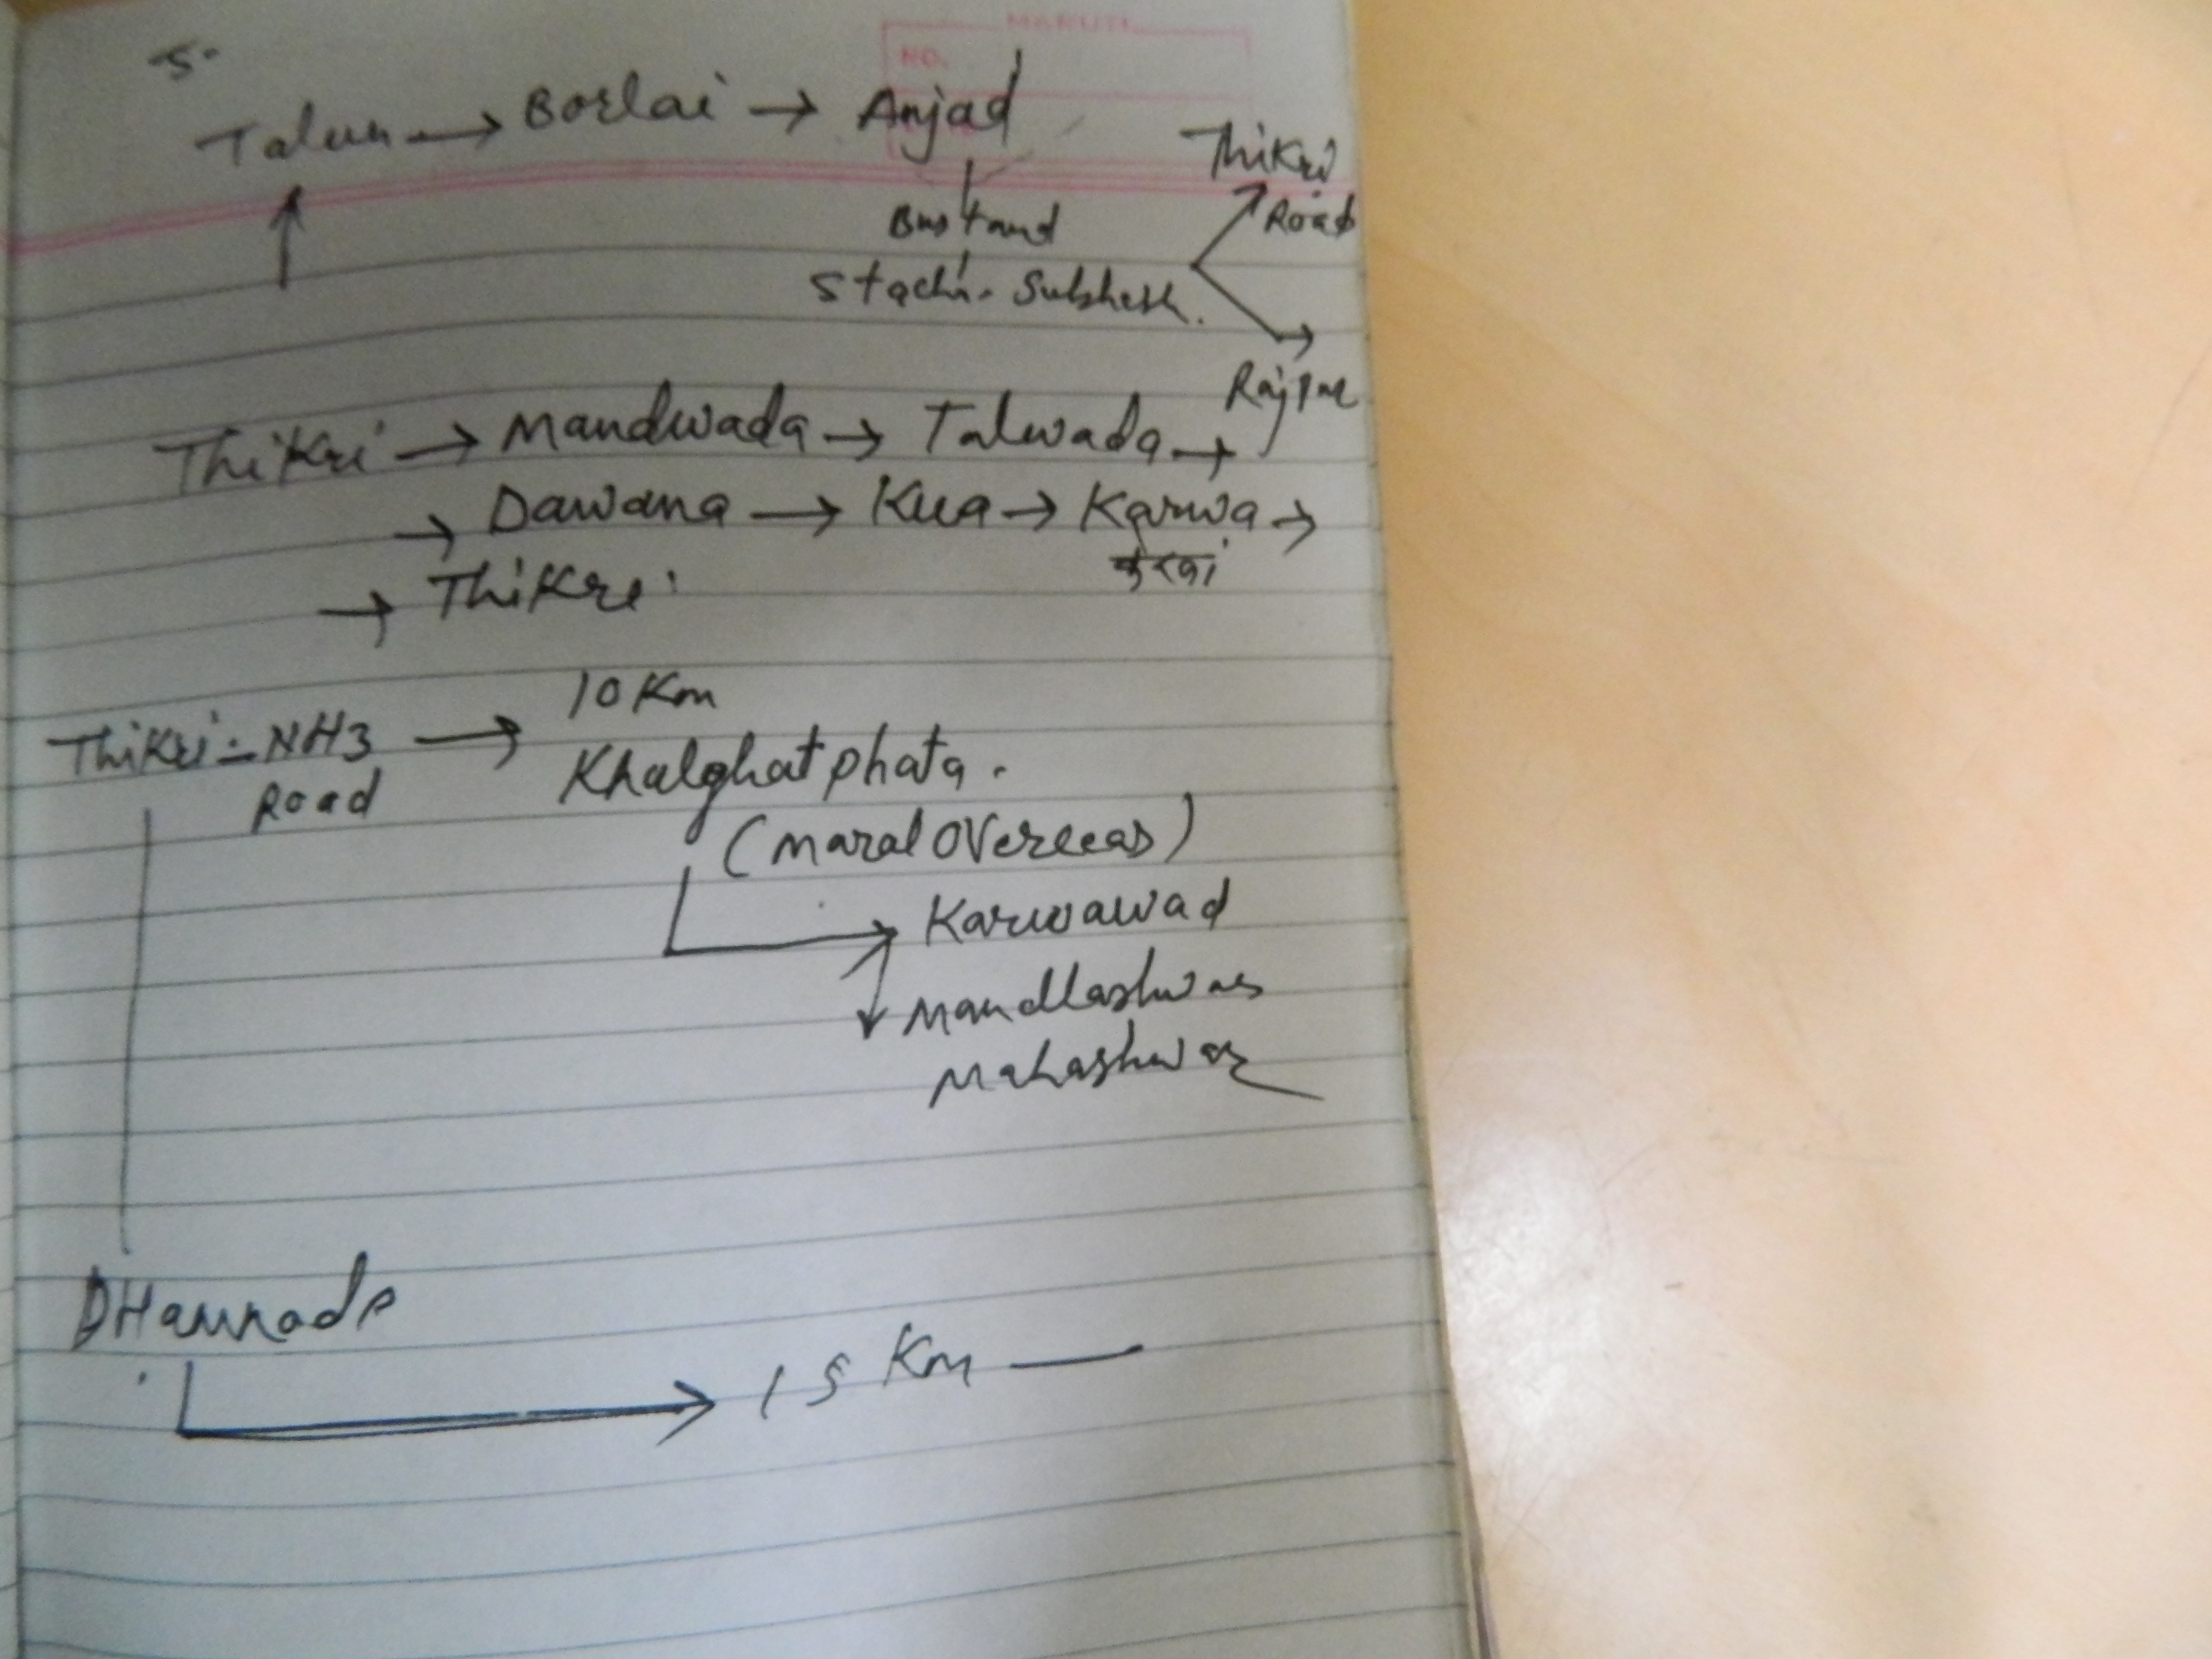 MARUTI
NO.
5.
Talun → Borlai → Anjad
Thikri
Road
Bustand
Rajpur
Thikri → Mandwada → Talwada →
→ Dawana → Kua → Karwa →
→ Thikri
10 Km
Thikri - NH3 →
Road
Khalghat phata.
(Maral Overseas)
Karwawad
Mandlashwar
Mahashwar
DHamnode
→ 15 Km —